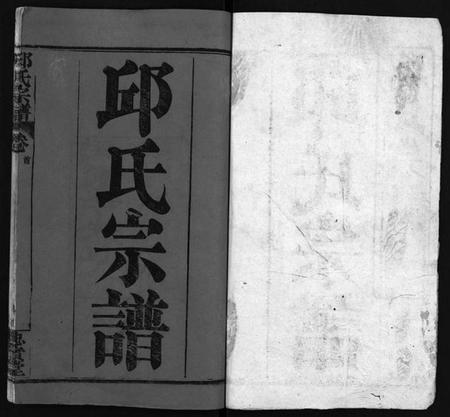 邱氏宗譜
邱氏宗譜 卷 首